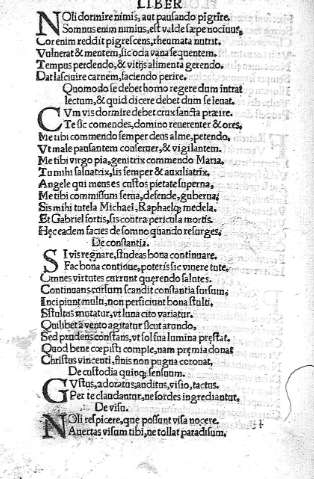 LIBER
NOli dormire nimis, aut pausando pigrire.
Somnus enim nimius, est valde sæpe nociuus,
Cor enim reddit pigrescens, rheumata nutrit.
Vulnerat & mentem, sic ocia vana sequentem.
Tempus perdendo, & vitijs alimenta gerendo.
Dat lasciuire carnem, faciendo perire.
Quomodo se debet homo regere dum intrat
lectum, & quid dicere debet dum se leuat.
CVm vis dormire debet crux sancta præire.
Te sic comendes, domino reuerenter & ores,
Me tibi commendo semper deus alme, petendo,
Vt male pausantem conserues, & vigilantem.
Me tibi virgo pia, genitrix commendo Maria.
Tu mihi saluatrix, sis semper & auxiliatrix.
Angele qui meus es custos pietate superna,
Me tibi commissum serua, defende, guberna;
Sis mihi tutela Michael, Raphaelq; medela.
Et Gabriel fortis, sis contra pericula mortis.
Hęc eadem facies de somno quando resurges.
De constantia.
SI vis regnare, studeas bona continuare.
Fac bona continue, poteris sic viuere tute.
Omnes virtutes currunt querendo salutes.
Continuans cursum scandit constantia sursum;
Incipiunt multi, non perficiunt bona stulti,
Stultus mutatur, vt luna cito variatur.
Quilibet a vento agitatur sicut arundo,
Sed prudens constans, vt sol sua lumina pręstat.
Quod bene cœpisti comple, nam pręmia donat
Christus vincenti, finis non pugna coronat.
De custodia quinq; sensuum.
GVstus, adoratus, auditus, visio, tactus.
Per te claudantur, ne sordes ingrediantur.
De visu.
NOli respicere, que possunt visa nocere.
Auertas visum tibi, ne tollat paradisum.